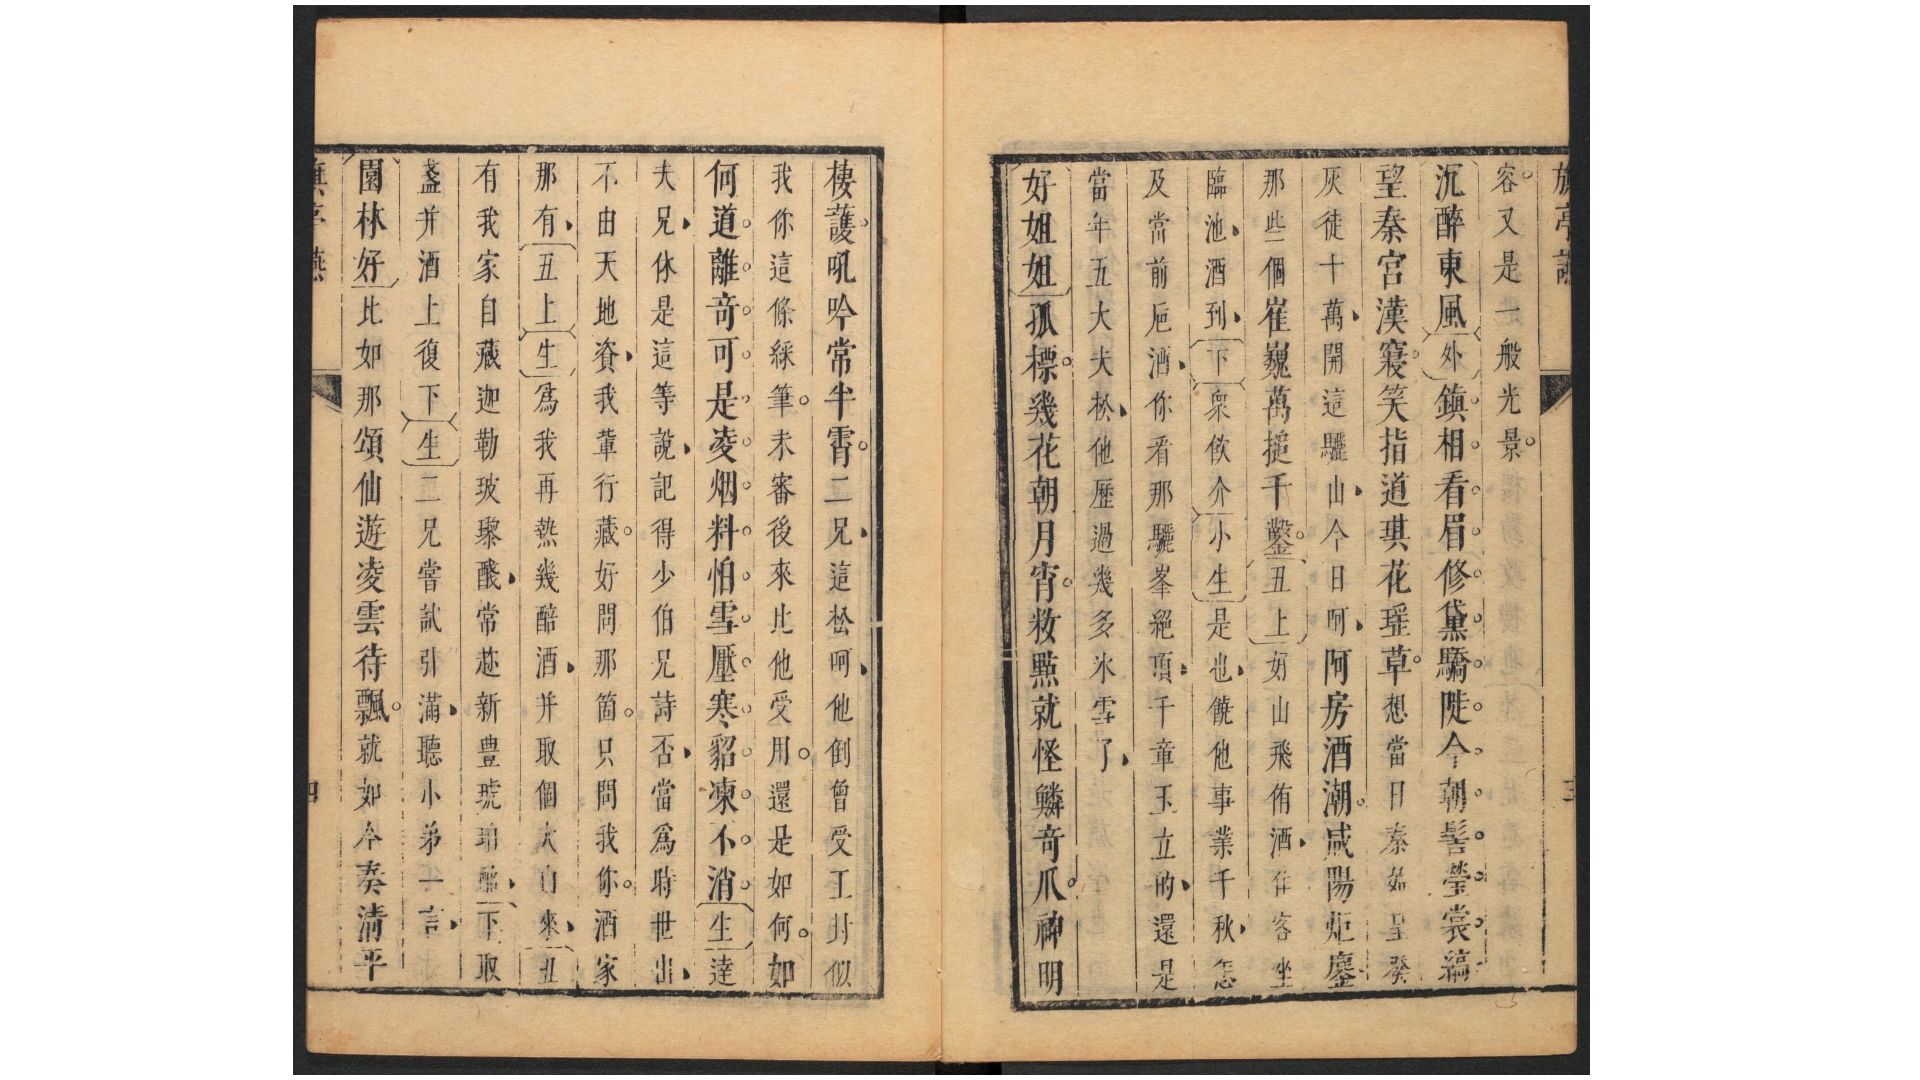 旗亭讌
三
容又是一般光景
沉醉東風外鎮相看眉修黛驕陡今朝髻瑩裳縞
望秦宮漢寢笑指道琪花瑶草想當日秦始皇發
灰徒十萬開這驪山今日呵阿房酒潮咸陽炬鏖
那些個崔巍萬搥千鑿丑上好山飛侑酒佳客坐
臨池酒到下衆飲介小生是也饒他事業千秋怎
及當前巵酒你看那驪峯絕頂千章玉立的還是
當年五大夫松他歷過幾多氷雪了
好姐姐孤標幾花朝月宵敉㸃就怪鱗奇爪神明
棲護吼吟常半霄二兄這松呵他倒曾受工封似
我你這條綵筆未審後來比他受用還是如何如
何道離奇可是凌烟料怕雪壓寒貂凍不消生逹
夫兄休是這等說記得少伯兄詩否當爲時世出
不由天地資我輩行藏好問那箇只問我你酒家
那有丑上生爲我再熱幾醅酒并取個大的來丑
有我家自藏迦勒玻瓈醆常趂新豊琥珀醪下取
盞并酒上復下生二兄嘗試引滿聽小弟一言
園林好比如那頌仙遊凌雲待飄就如今奏清平
旗亭讌
四